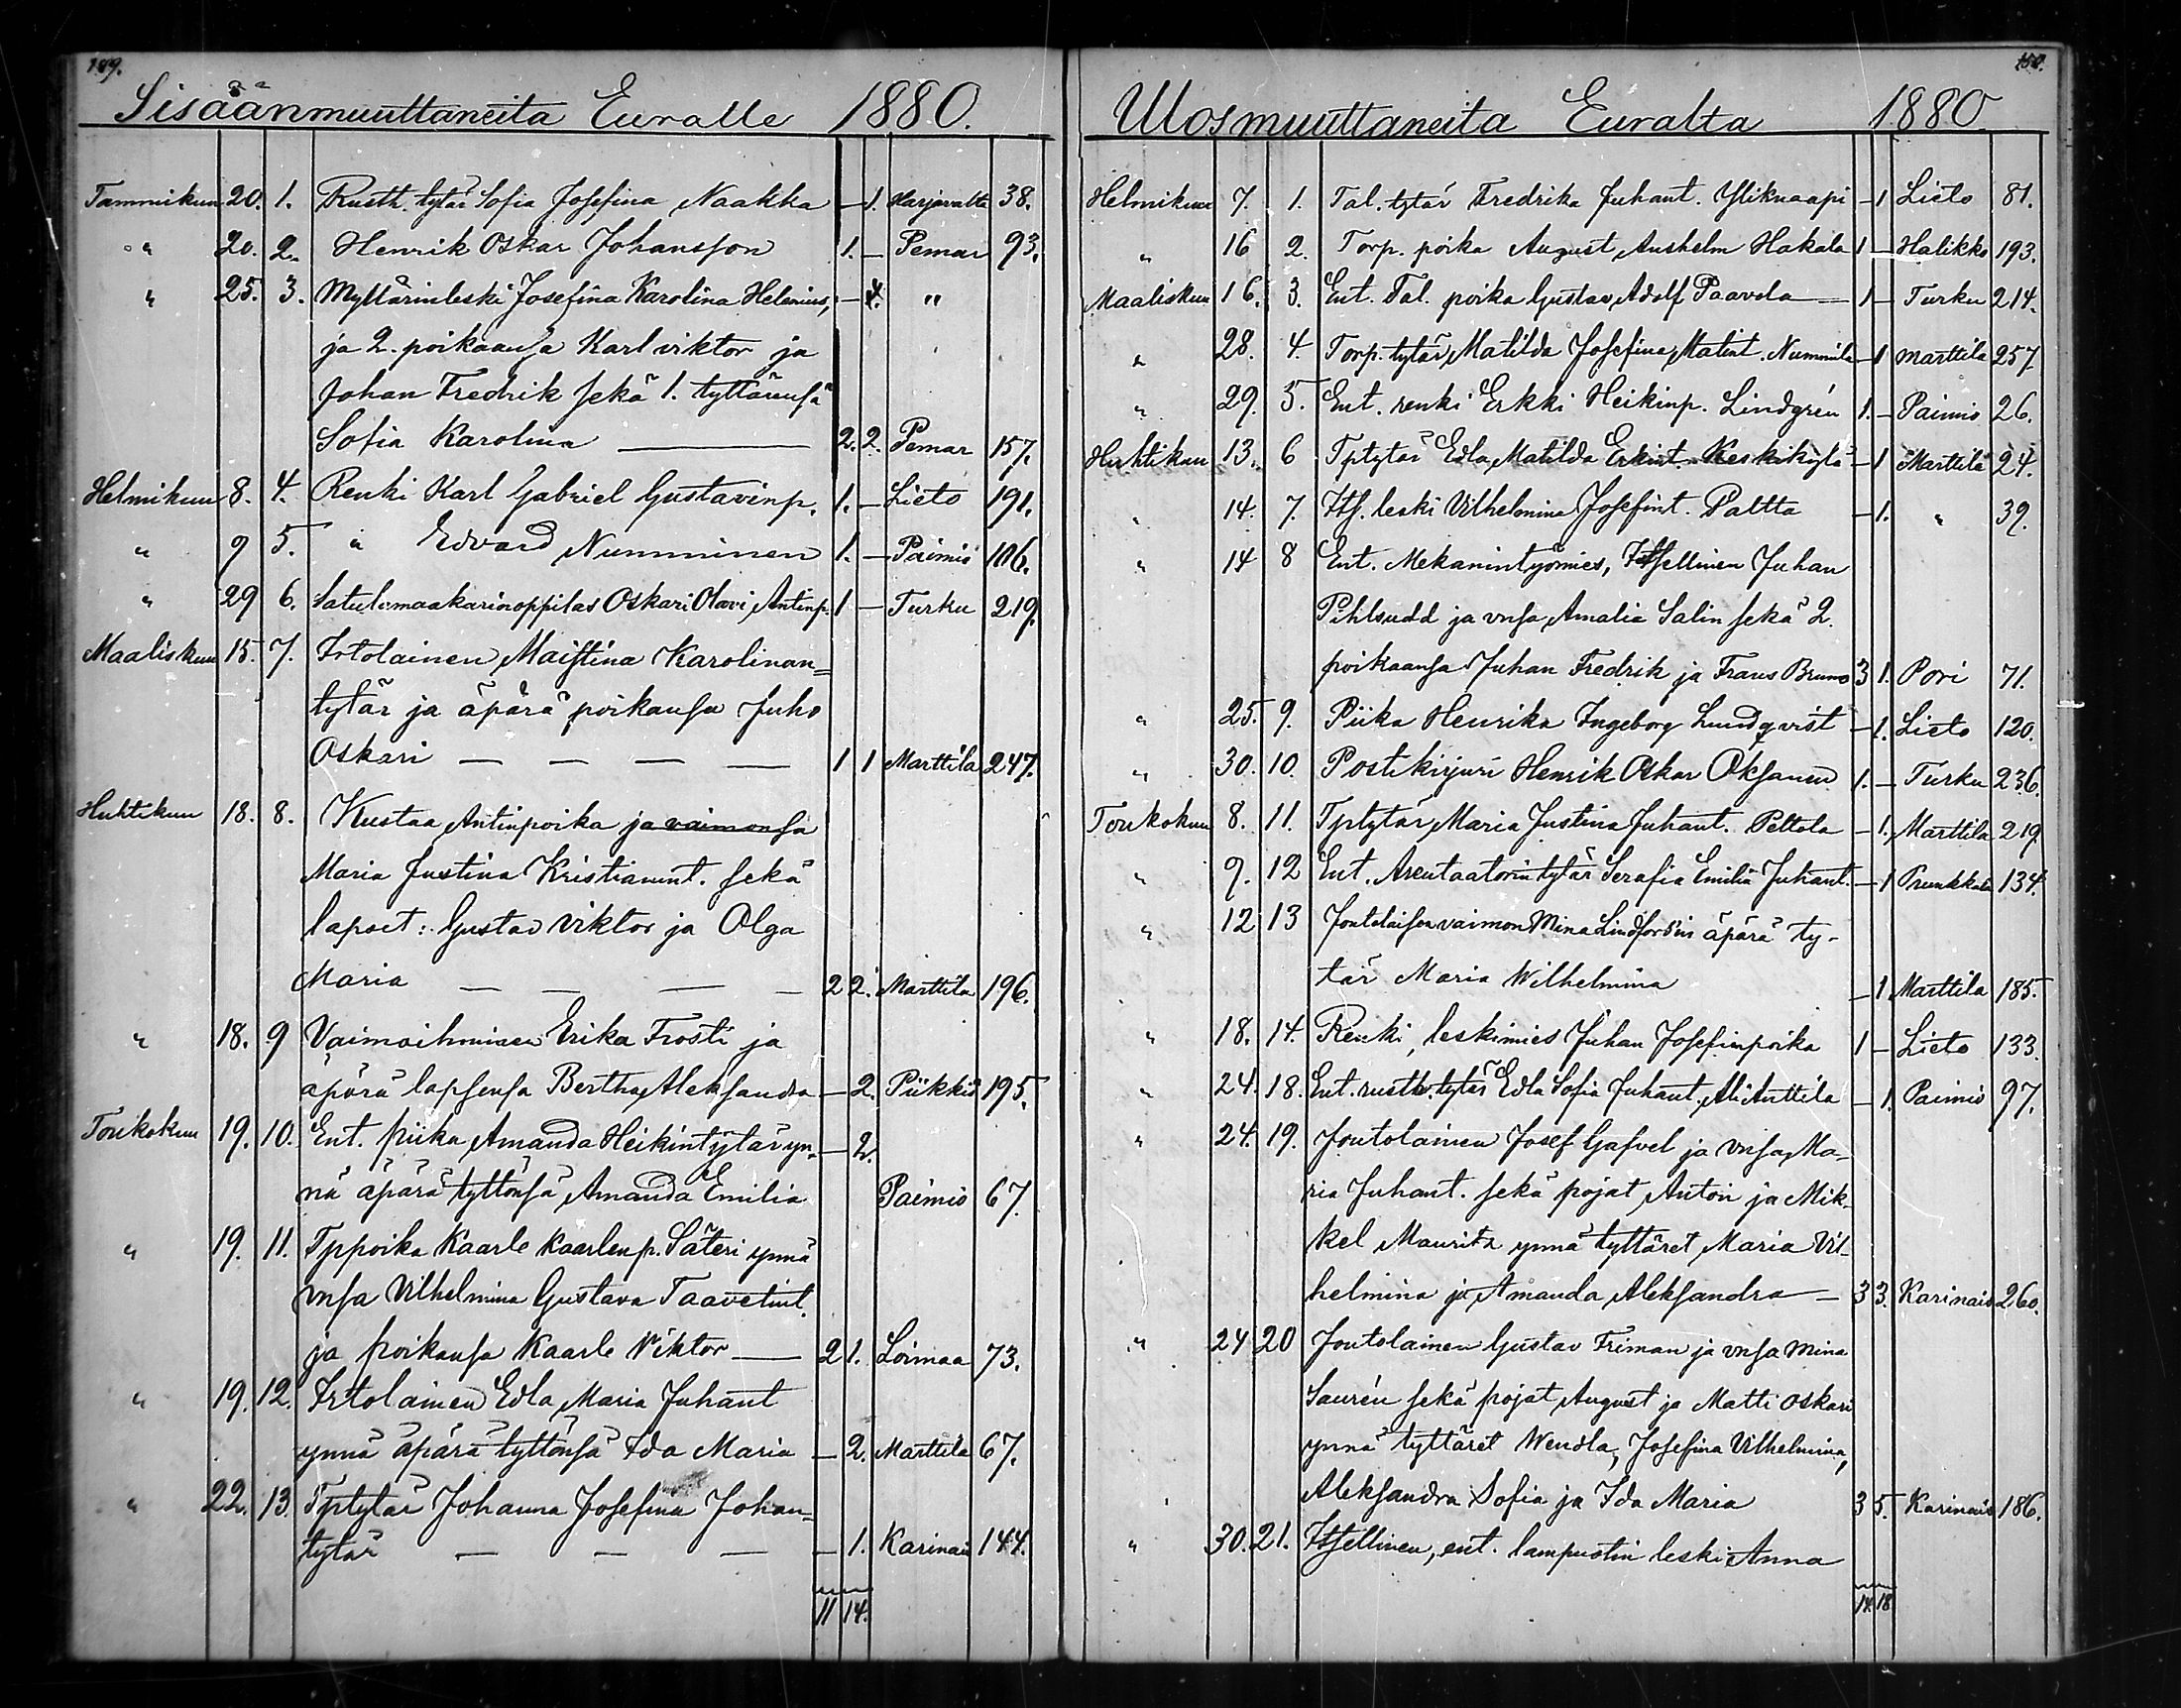 149.
Sisäänmuuttaneita Euralle 1880.
Tammikuu 20. 1. Rusth. tytär Sofia Josefina Naakka — 1. Harjavalta 38.
" 20. 2. Henrik Oskar Johansson 1. — Pemar 93.
" 25. 3. Myllärinleski Josefina Karolina Helenius, — "
ja 2. poikaansa Karl viktor ja
Johan Fredrik sekä 1. tyttärensä
Sofia Karolina — 2. 2. Pemar 157.
Helmikuu 8. 4. Renki Karl Gabriel Gustavinp. 1. — Lieto 191.
" 9 5. " Edvard Numminen 1. — Paimio 186.
" 29 6. Satulamaakarinoppilas Oskari Olavi Antinp. 1 — Turku 219.
Maaliskuu 15. 7. Irtolainen Maistina Karolinan=
tytär ja äpärä poikansa Juho
Oskari — — — — 1 1 Marttila 247.
Huhtikuu 18. 8. Kustaa Antinpoika ja vaimonsa
Maria Justina Kristianint. sekä
lapset: Gustav viktor ja Olga
Maria — — — — 2 2. Marttila 196.
" 18. 9 Vaimoihminen Erika Frosti ja
äpärä lapsensa Bertha Aleksandra — 2. Piikkiö 195.
Toukokuu 19. 10. Ent. piika Amanda Heikintytär yn- — 2.
nä äpärä tyttönsä Amanda Emilia Paimio 67.
" 19. 11. Tppoika Kaarle Kaarlenp. Säteri ynnä
vnsa Vilhelmina Gustava Taavetint.
ja poikansa Kaarle Viktor — 2 1. Loimaa 73.
" 19. 12. Irtolainen Edla Maria Juhant
ynnä äpärä tyttönsä Ida Maria — 2. Marttila 67.
" 22. 13. Tptytär Johanna Josefina Johan=
tytär — — — — 1. Karinais 144.
11 14.
150.
Ulosmuuttaneita Euralta 1880
Helmikuu 7. 1. Tal. tytär Fredrika Juhant. Yliknaapi — 1 Lieto 81.
" 16 2. Torp. poika August Anshelm Hakala 1 — Halikko 193.
Maaliskuu 16. 3. Ent. Tal. poika Gustav Adolf Paavola — 1 — Turku 214.
" 28. 4. Torp. tytär Matilda Josefina Matint. Nummila — 1 Marttila 257
" 29. 5. Ent. renki Erkki Heikinp. Lindgrén 1. — Paimio 26.
Huhtikuu 13. 6 Tptytär Edla Matilda Erkint. Keskikylä — 1 Marttila 24.
" 14. 7. Its. leski Vilhelmina Josefint. Paltta — 1. " 39.
" 14 8 Ent. Mekanintyömies, Itsellinen Juhan
Pihlsudd ja vnsa Amalia Salin sekä 2.
poikaansa Juhan Fredrik ja Frans Bruno 3 1. Pori 71.
" 25. 9. Piika Henrika Ingeborg Lundqvist — 1. Lieto 120.
" 30. 10. Postikirjuri Henrik Oskar Oksanen 1. — Turku 236.
Toukokuu 8. 11. Tptytär Maria Justina Juhant. Peltola — 1. Marttila 219
" 9. 12 Ent. Arentaatorin tytär Serafia Emilia Juhant. — 1 Prunkkala 134.
" 12 13 Joutolaisen vaimon Mina Lindfors'in äpärä ty-
tär Maria Wilhelmina — 1 Marttila 185.
" 18. 14. Renki, leskimies Juhan Josefinpoika 1 — Lieto 133.
" 24. 18. Ent. rusth. tytär Edla Sofia Juhant. Ali Anttila — 1. Paimio 97.
" 24. 19. Joutolainen Josef Gafvel ja vnsa Ma-
ria Juhant. sekä pojat Anton ja Mik-
kel Mauritz ynnä tyttäret Maria Vil-
helmina ja Amanda Aleksandra — 3 3. Karinais 260.
" 24 20 Joutolainen Gustav Friman ja vnsa Mina
Saurén sekä pojat August ja Matti Oskari
ynnä tyttäret Wendla, Josefina Vilhelmina,
Aleksandra Sofia ja Ida Maria 3 5. Karinais 186.
" 30. 21. Itsellinen, ent. lampuotin leski Anna
14. 18